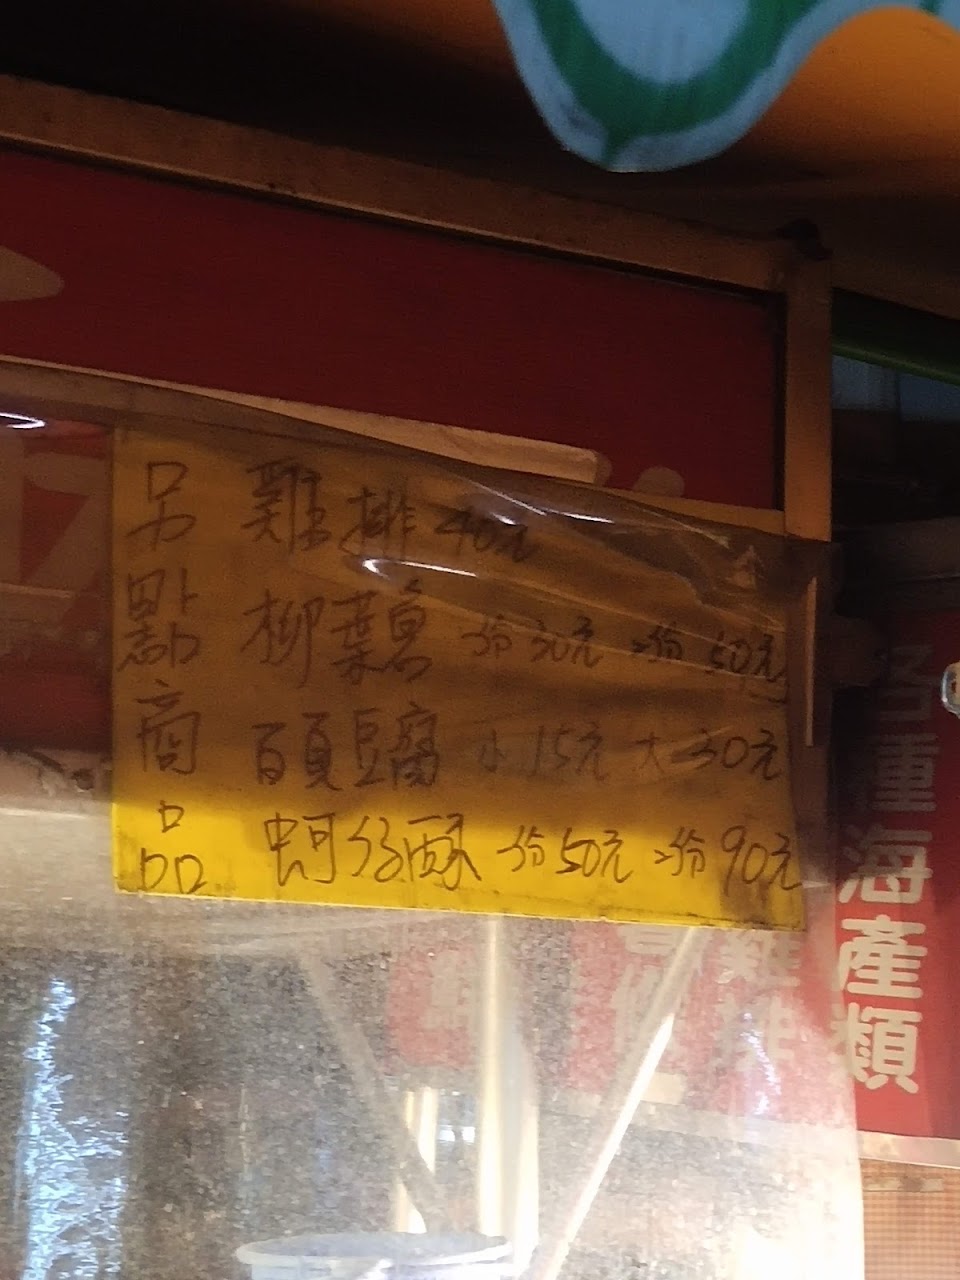 另點商品
雞排 40元
柳葉魚 一份30元 二份 50元
百頁豆腐 小 15元 大 30元
蚵仔酥 一份50元 二份90元
各種海產類
雞排